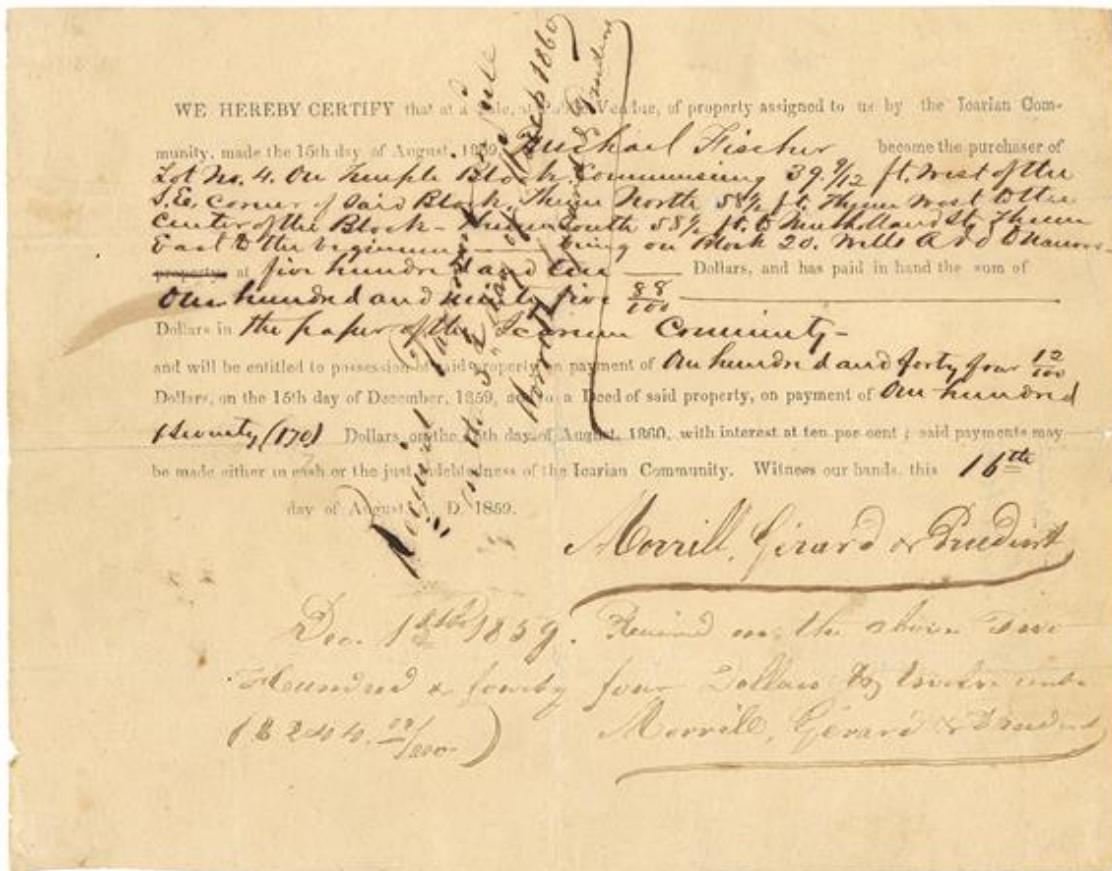 WE HEREBY CERTIFY that at a Sale, at Public Vendue, of property assigned to us by the Icarian Com-
munity, made the 15th day of August, 1859, Michael Fischer became the purchaser of
Lot No. 4. On Temple Block. Commensing 39. 9/12 ft. West of the
S.E. corner of said Block, Thence North 58½ ft. Thence West to the
Center of the Block - South 58½ ft. to Mulholland St. Thence
East to the being on Block 20. Wells Add to Nauvoo
property at five hundred and Dollars, and has paid in hand the sum of
One hundred and ninty five 88/100
Dollars in the paper of the Icarian Community -
and will be entitled to possession of said property on payment of One hundred and forty four 12/100
Dollars, on the 15th day of December, 1859, and to a Deed of said property, on payment of One hundred
& Seventy (170) Dollars on the 15th day of August, 1860, with interest at ten per cent ; said payments may
be made either in cash or the just indebtedness of the Icarian Community. Witness our hands, this 16th
day of August A. D. 1859.
Morrill, Girard & Prudent
Dec. 1859. Received on the above
Houndred & fourty four Dollars & twelve cents
Morrill, Gerard & Prudent
Received payment in full
on the day of Sep 1860
Morrill, Gerard & Prudent